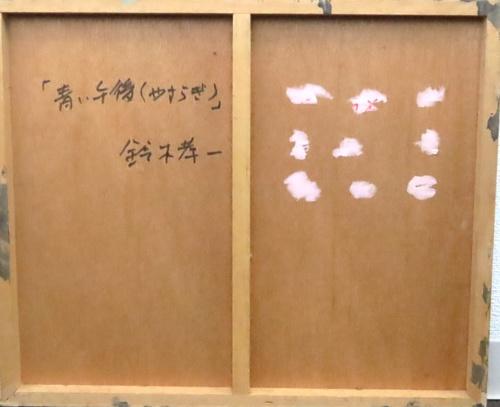 「青い午後(やすらぎ)」
鈴木孝一